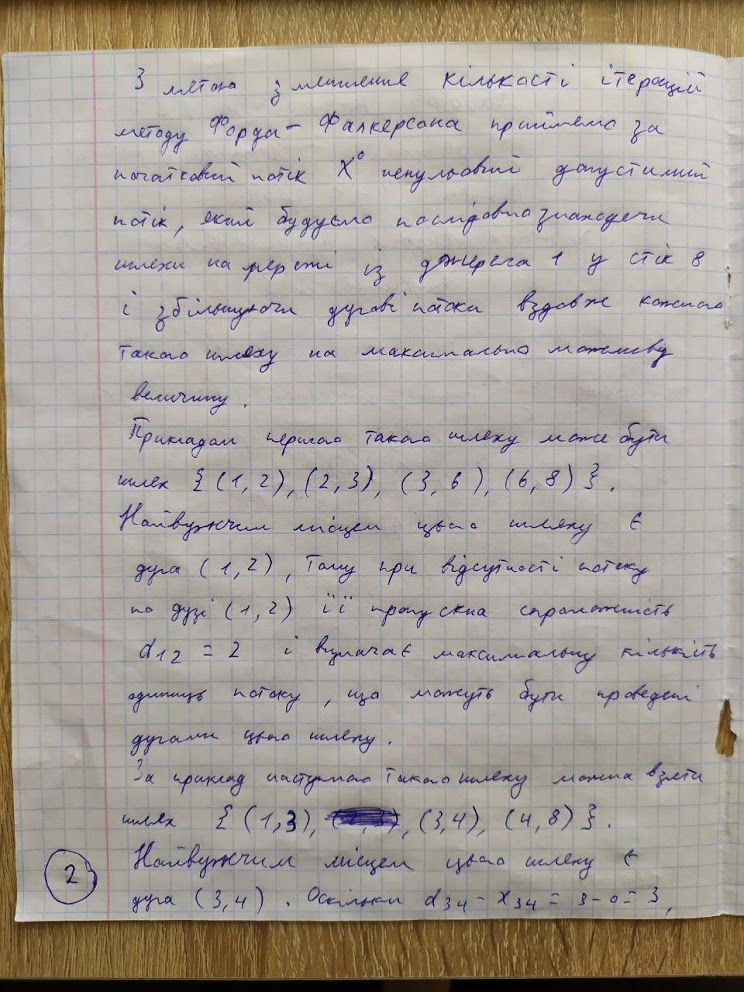 З метою зменшення кількості ітерацій
методу Форда-Фалкерсона приймемо за
початковий потік X⁰ ненульовий допустимий
потік, який будуємо послідовно знаходячи
шляхи на мережі із джерела 1 у стік 8
і збільшуючи дугові потоки вздовж кожного
такого шляху на максимально можливу
величину.
Прикладом першого такого шляху може бути
шлях {(1,2), (2,3), (3,6), (6,8)}.
Найвужчим місцем цього шляху є
дуга (1,2), Тому при відсутності потоку
по дузі (1,2) її пропускна спроможність
d12 = 2 і визначає максимальну кількість
одиниць потоку, що можуть бути проведені
дугами цього шляху.
За приклад наступного такого шляху можна взяти
шлях {(1,3), , (3,4), (4,8)}.
Найвужчим місцем цього шляху є
2
дуга (3,4). Оскільки d34 - x34 = 3-0 = 3,